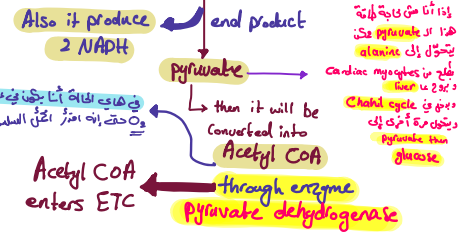 Also it produce
2 NADH
end product
pyruvate
then it will be
converted into
Acetyl COA
through enzyme
pyruvate dehydrogenase
Acetyl COA
enters ETC
في هاي الحالة أنا بكون في
O₂
إذا أنا مش بحاجة طاقة
هذا ال pyruvate ممكن
يتحول إلى alanine
cardiac myocytes من
liver
Cahil cycle
ويتحول مرة أخرى إلى
pyruvate then
glucose